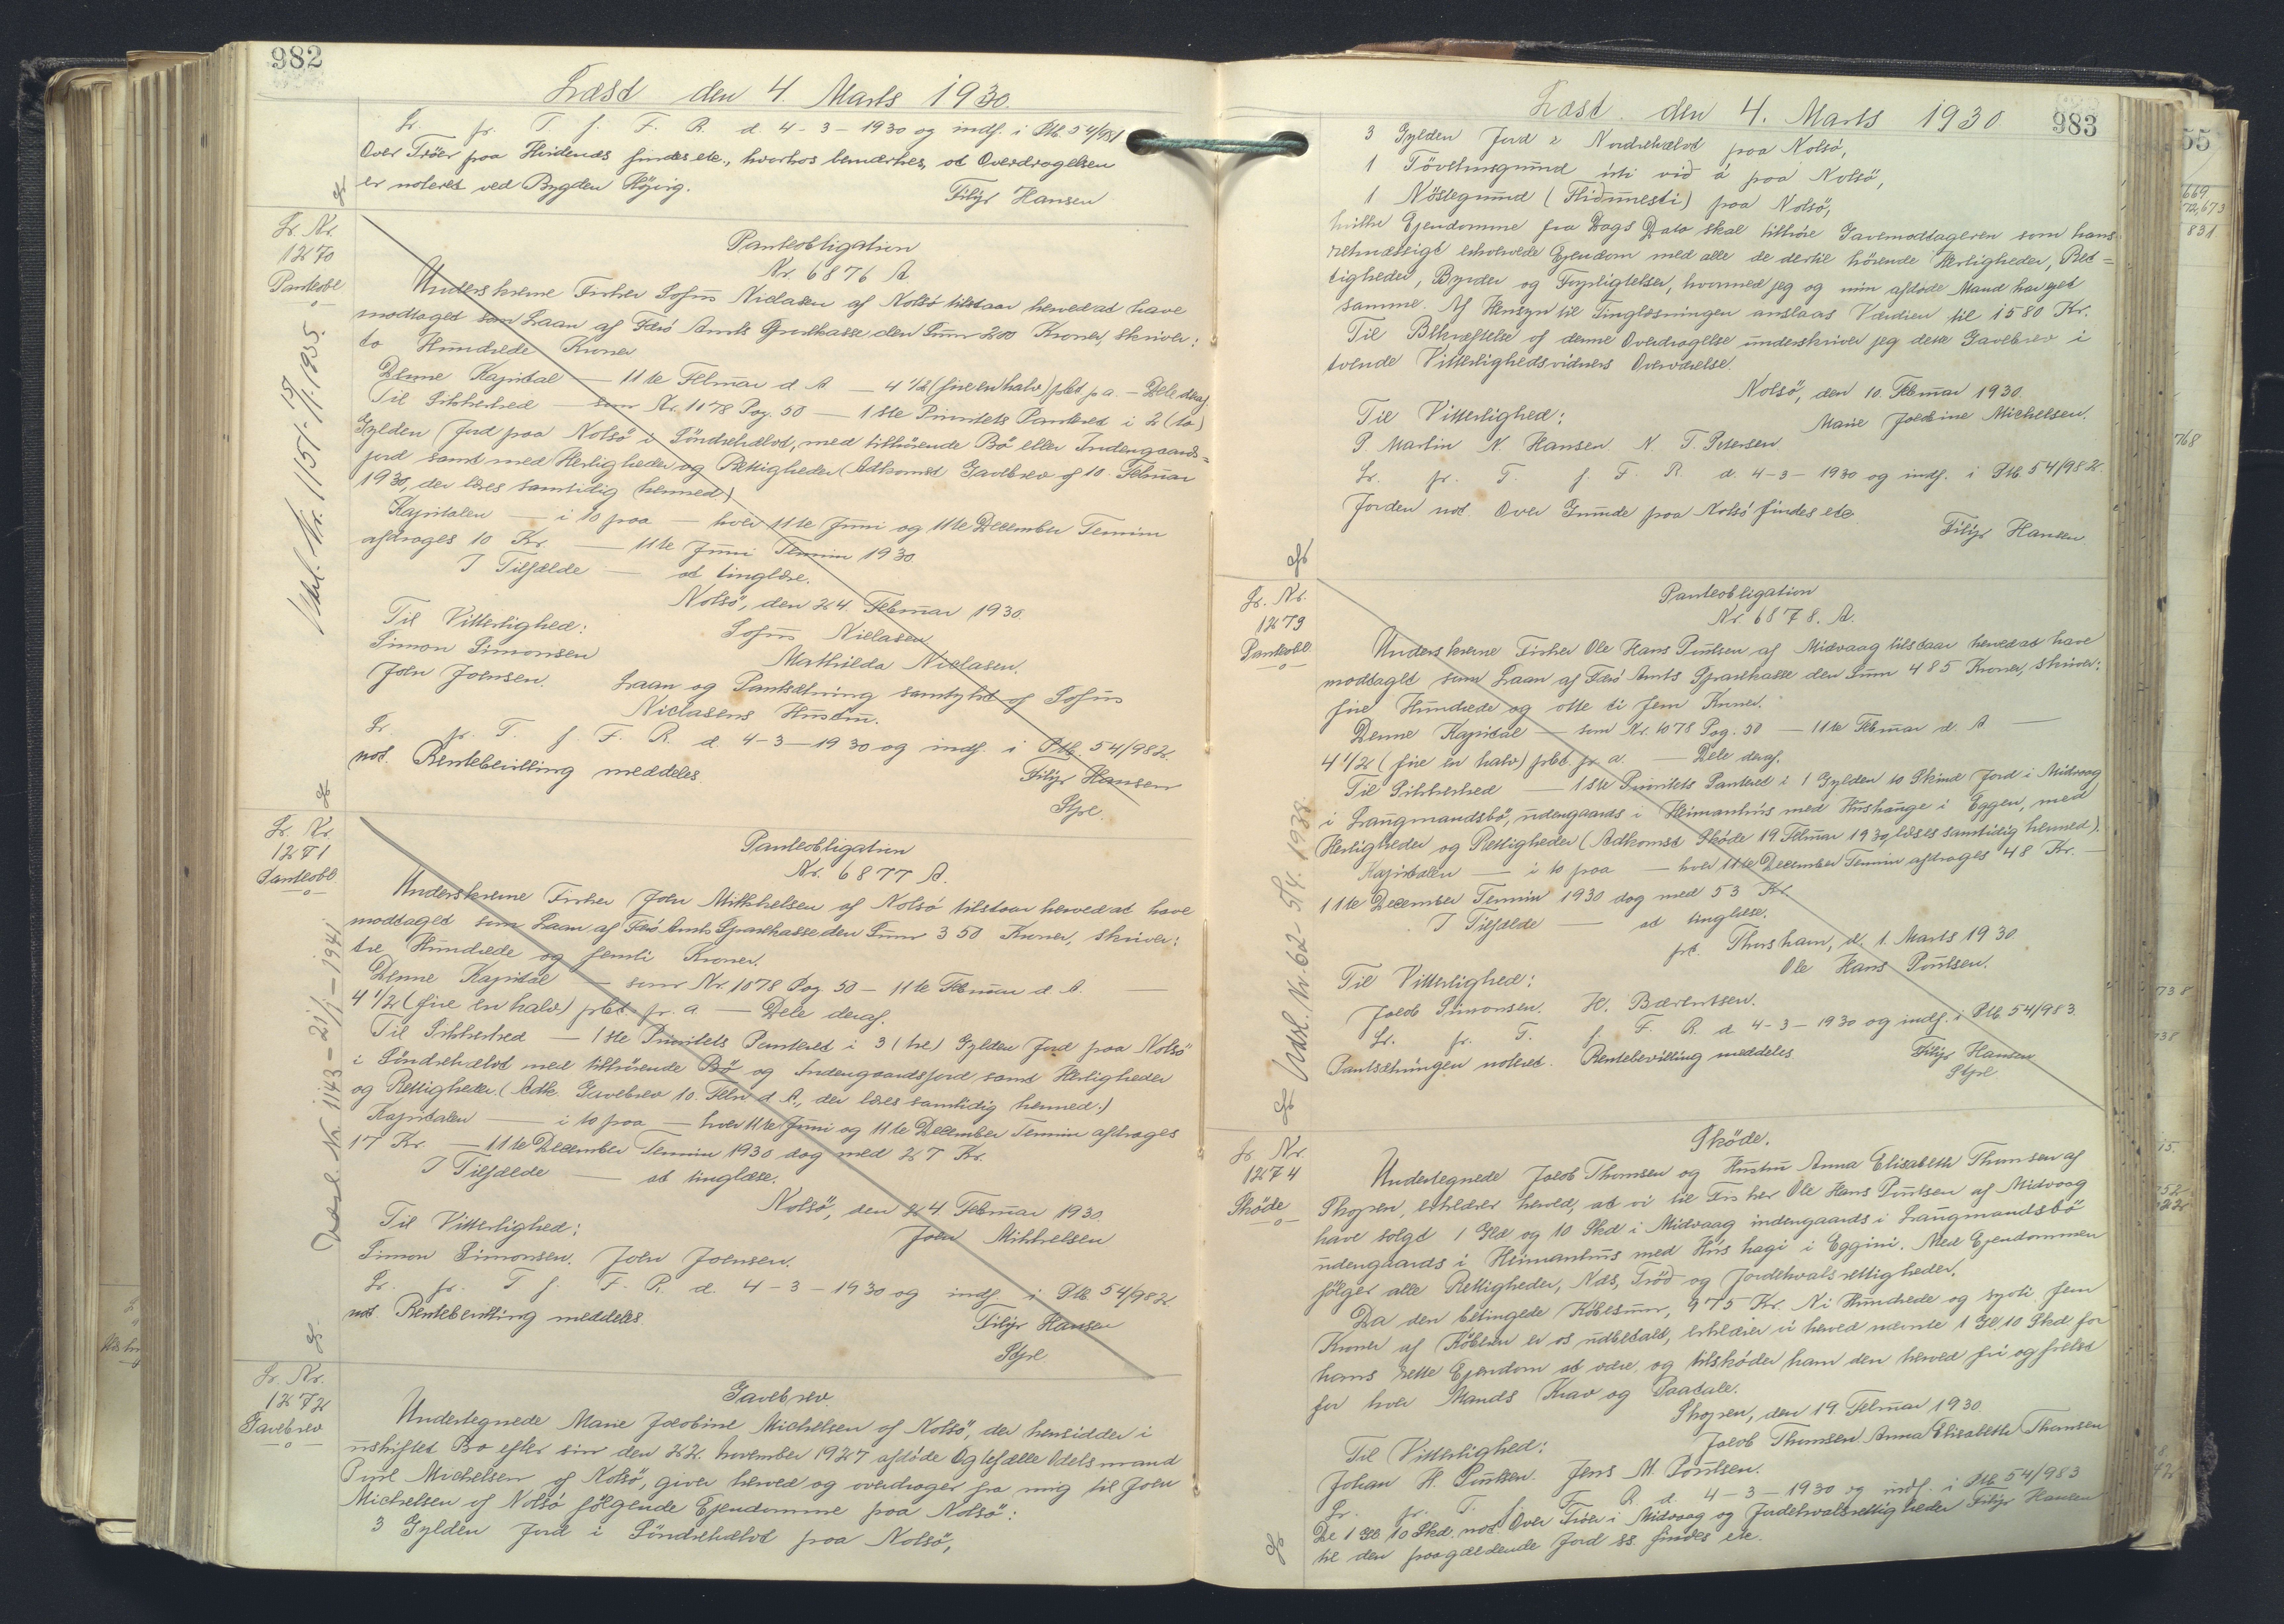 982
Læst den 4. Marts 1930.
Lr. pr. T. f. F. R. d. 4-3-1930 og indf. i Ptb. 54/981
Over Tröer paa Hvidenæs findes etc., hvorhos bemærkes, at Overdragelsen
er noteret ved Bygden Höjvig.
Filip Hansen
Lr. Nr.
1270
Panteobl
Udsl. Nr. 1151-15/11. 1935.
Panteobligation
Nr. 6876 A.
Underskrevne Fisker Sofus Niclasen af Nolsö tilstaar herved at have
modtaget som Laan af Færö Amts Sparekasse den Sum 200 Kroner, skriver:
to Hundrede Kroner
Denne Kapital — 11te Februar d. A — 4 1/2 (fire en halv) pCt p a. — Dele deraf
Til Sikkerhed — som Nr. 1078 Pag. 50 — 1ste Prioritets Panteret i 2 (to)
Gylden Jord paa Nolsö i Söndrehælvt, med tilhörende Bö eller Indengaards=
jord samt med Herligheder og Rettigheder (Adkomst Gavebrev af 10 Februar
1930, der læses samtidig hermed)
Kapitalen — i 10 paa — hver 11te Juni og 11te December Termin
afdrages 10 Kr. — 11te Juni Termin 1930.
I Tilfælde — at tinglæse.
Nolsö, den 24 Februar 1930.
Til Vitterlighed: Sofus Niclasen
Simon Simonsen Mathilda Niclasen.
John Joensen. Laan og Pantsætning samtykt af Sofus
Niclasens Hustru.
Lr. pr. T. f. F. R. d. 4-3-1930 og indf. i Ptb. 54/982.
not. Rentebevilling meddeles
Filip Hansen
Stpl.
Lr. Nr.
1271
Panteobl
Udsl. Nr. 1143 - 21/1 - 1941.
Panteobligation
Nr. 6877 A.
Underskrevne Fisker Joen Mikkelsen af Nolsö tilstaar herved at have
modtaget som Laan af Færö Amts Sparekasse den Sum 350 Kroner, skriver:
tre Hundrede og femti Kroner.
Denne Kapital — som Nr. 1078 Pag 50 — 11te Februar d. A. —
4 1/2 (fire en halv) pCt. pr. a — Dele deraf.
Til Sikkerhed — 1ste Prioritets Panteret i 3 (tre) Gylden Jord paa Nolsö
i Söndrehælvt med tilhörende Bö og Indengaardsjord samt Herligheder
og Rettigheder. (Adk. Gavebrev 10. Febr d. A., der læses samtidig hermed.)
Kapitalen — i 10 paa — hver 11te Juni og 11te December Termin afdrages
17 Kr. — 11te December Termin 1930 dog med 27 Kr.
I Tilfælde — at tinglæse.
Nolsö, den 24 Februar 1930.
Til Vitterlighed: Joen Mikkelsen
Simon Simonsen. Joen Joensen.
Lr. pr. T f. F. R. d. 4-3-1930 og indf. i Ptb. 54/982.
not. Rentebevilling meddeles
Filip Hansen
Stpl
Lr. Nr.
1272
Gavebrev
Gavebrev.
Undertegnede Marie Jacobine Michelsen af Nolsö, der hensidder i
uskiftet Bo efter sin den 22. November 1927 afdöde Ægtefælle Odelsmand
Poul Michelsen af Nolsö, giver herved og overdrager fra mig til Joen
Michelsen af Nolsö fölgende Ejendomme paa Nolsö:
3 Gylden Jord i Söndrehælvt paa Nolsö,
983
Læst den 4. Marts 1930
3 Gylden Jord i Nordrehælvt paa Nolsö,
1 Tövehusgrund úti við á paa Nolsö,
1 Nöstegrund (Niðrunesti) paa Nolsö,
hvilke Ejendomme fra Dags Dato skal tilhöre Gavemodtageren som hans
retmæssigt erhvervede Ejendom med alle de dertil hörende Herligheder, Ret=
tigheder, Byrder og Forpligtelser, hvormed jeg og min afdöde Mand har ejet
samme. Af Hensyn til Tinglæsningen anslaas Værdien til 1580 Kr.
Til Bekræftelse af denne Overdragelse underskriver jeg dette Gavebrev i
tvende Vitterlighedsvidners Overværelse.
Nolsö, den 10. Februar 1930.
Til Vitterlighed: Marie Jacobine Michelsen.
P Martin N. Hansen N. T. Petersen
Lr. pr. T. f. F. R. d. 4-3-1930 og indf. i Ptb 54/982.
Jorden not Over Grunde paa Nolsö findes etc.
Filip Hansen.
Lr. Nr.
1273
Panteobl
Udsl. Nr. 62 - 5/4. 1938.
Panteobligation
Nr 6878. A.
Underskrevne Fisker Ole Hans Poulsen af Midvaag tilstaar herved at have
modtaget som Laan af Færö Amts Sparekasse den Sum 485 Kroner, skriver:
fire Hundrede og otte ti fem Kroner.
Denne Kapital — som Nr. 1078 Pag. 50 — 11te Februar d. A —
4 1/2 (fire en halv) pCt. pr a. — Dele deraf.
Til Sikkerhed — 1ste Prioritets Panteret i 1 Gylden 10 Skind Jord i Midvaag
i Laugmandsbö, udengaards i Heimanhus med Hushauge i Eggen, med
Herligheder og Rettigheder (Adkomst Sköde 19 Februar 1930, læses samtidig hermed).
Kapitalen — i 10 paa — hver 11te December Termin afdrages 48 Kr. —
11te December Termin 1930 dog med 53 Kr.
I Tilfælde — at tinglæse.
pt. Thorshavn, d. 1. Marts 1930
Til Vitterlighed: Ole Hans Poulsen.
Jacob Simonsen. H. Bærentsen.
Lr. pr. T. f F. R. d. 4-3-1930 og indf. i Ptb 54/983.
Pantsætningen noteret. Rentebevilling meddeles
Filip Hansen
Stpl
Lr Nr.
1274
Sköde
Sköde.
Undertegnede Jacob Thomsen og Hustru Anna Elisabeth Thomsen af
Skopen, erklærer herved, at vi til Fisker Ole Hans Poulsen af Midvaag
have solgt 1 Gld og 10 Skd i Midvaag indengaards i Laugmandsbö
udengaards i Heimanhus med Hús hagi i Eggini. Med Ejendommen
fölger alle Rettigheder, Næs, Tröð og Jordehvalsrettigheder.
Da den betingede Köbesum, 975 Kr. Ni Hundrede og syvti fem
Kroner af Köberen er os udbetalt, erklærer vi herved nævnte 1 Gl. 10 Skd for
hans rette Ejendom at være og tilsköder ham den herved fri og frelst
for hver Mands Krav og Paatale.
Skopen, den 19. Februar 1930
Til Vitterlighed: Jacob Thomsen Anna Elisabeth Thomsen
Johan H. Poulsen. Jens M. Poulsen.
Lr. pr. T. f. F. R. d. 4-3-1930 og indf. i Ptb 54/983
De 1 Gl. 10 Skd. not Over Tröer i Midvaag og Jordehvalsrettigheder Filip Hansen
til den paagældende Jord ss. findes etc.